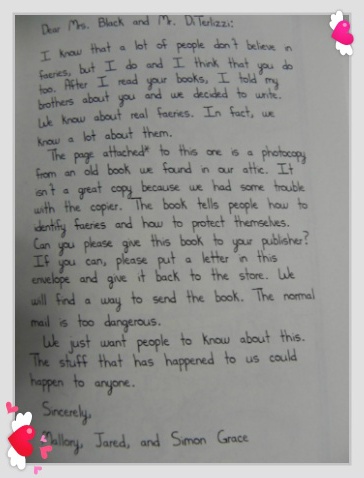 Dear Mrs. Black and Mr. DiTerlizzi:
I know that a lot of people don't believe in
faeries, but I do and I think that you do
too. After I read your books, I told my
brothers about you and we decided to write.
We know about real faeries. In fact, we
know a lot about them.
The page attached* to this one is a photocopy
from an old book we found in our attic. It
isn't a great copy because we had some trouble
with the copier. The book tells people how to
identify faeries and how to protect themselves.
Can you please give this book to your publisher?
If you can, please put a letter in this
envelope and give it back to the store. We
will find a way to send the book. The normal
mail is too dangerous.
We just want people to know about this.
The stuff that has happened to us could
happen to anyone.
Sincerely,
Mallory, Jared, and Simon Grace